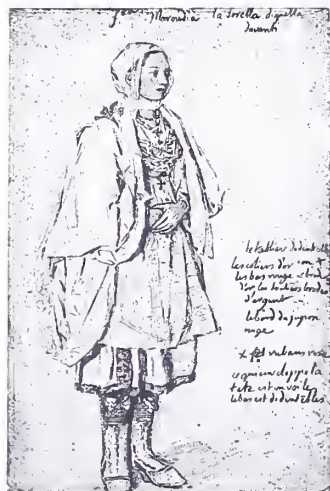 Maroudia la sorella di quella
davanti
le tablier de dentelle
les colliers d'or
les bas rouge brodé
d'or les souliers brodés
d'argent
le bord du jupon
rouge
rubans rose
ce qui enveloppe la
tete est un voile
le bas est de dentelles